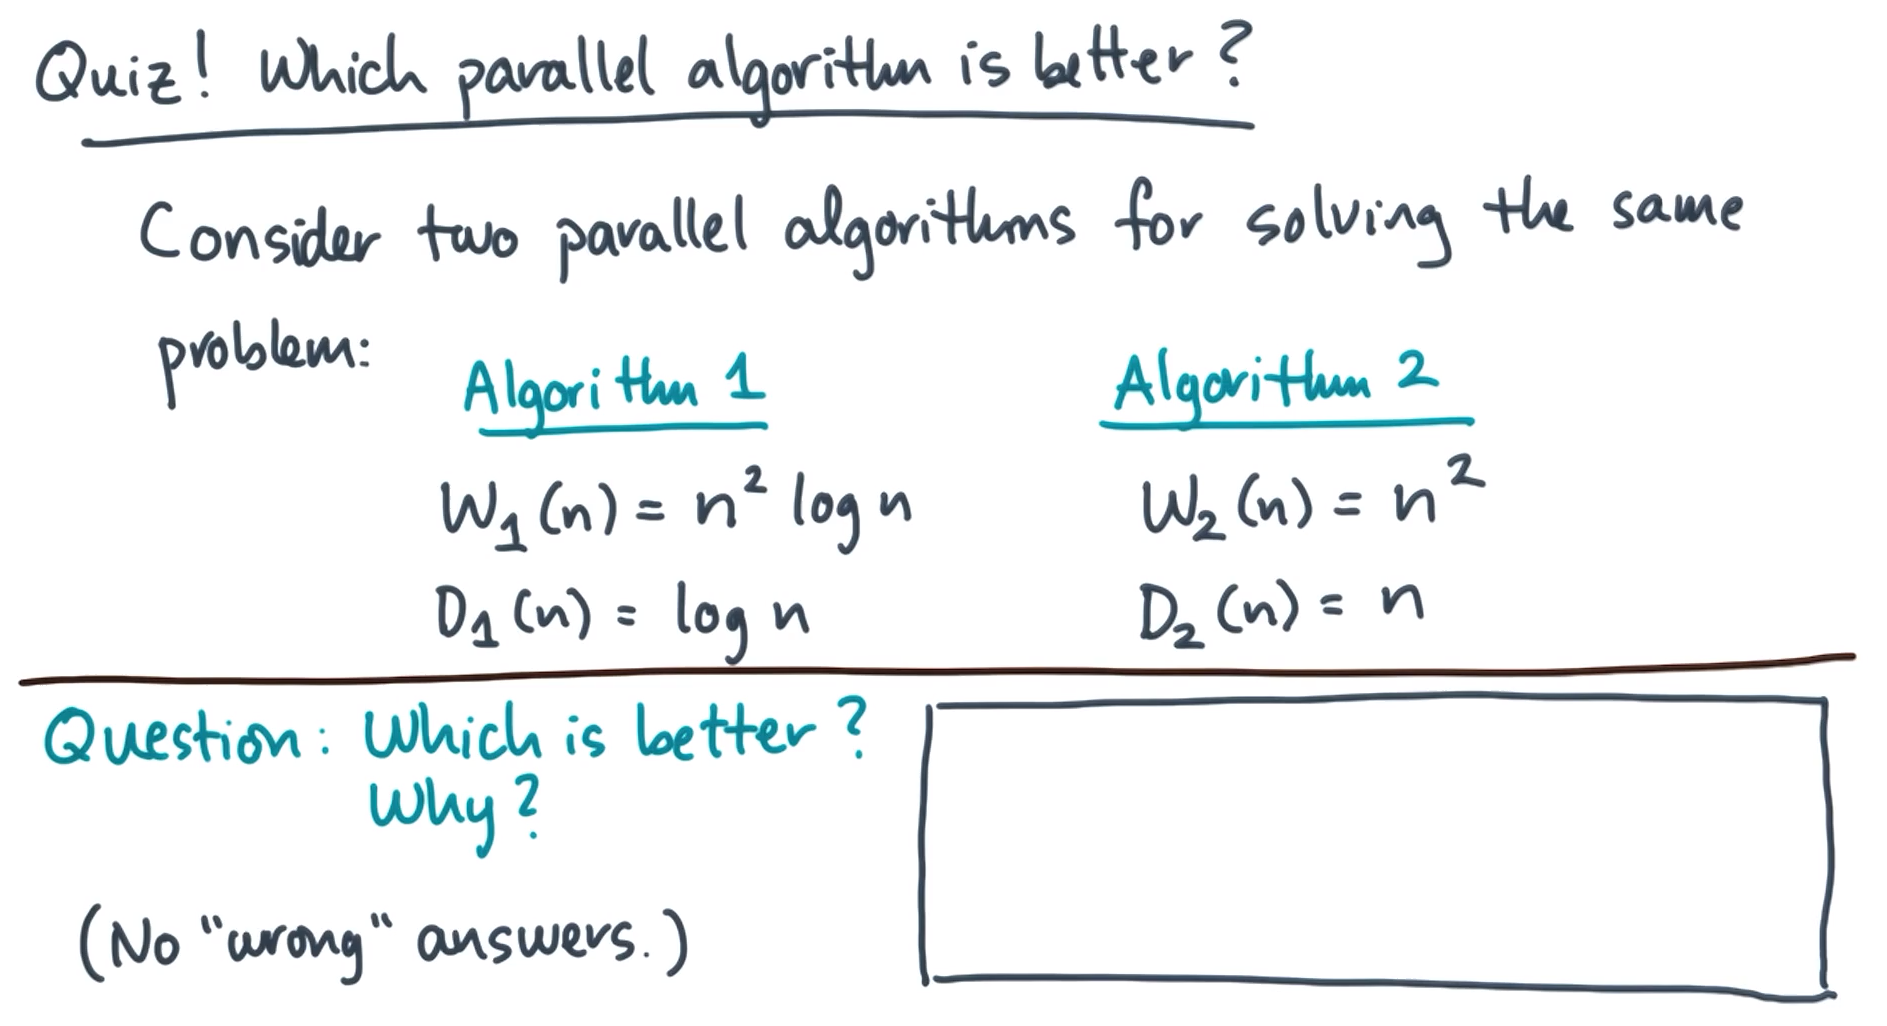 Quiz! Which parallel algorithm is better?
Consider two parallel algorithms for solving the same
problem:
Algorithm 1 Algorithm 2
W₁(n) = n² log n W₂(n) = n²
D₁(n) = log n D₂(n) = n
Question: Which is better?
Why?
(No "wrong" answers.)